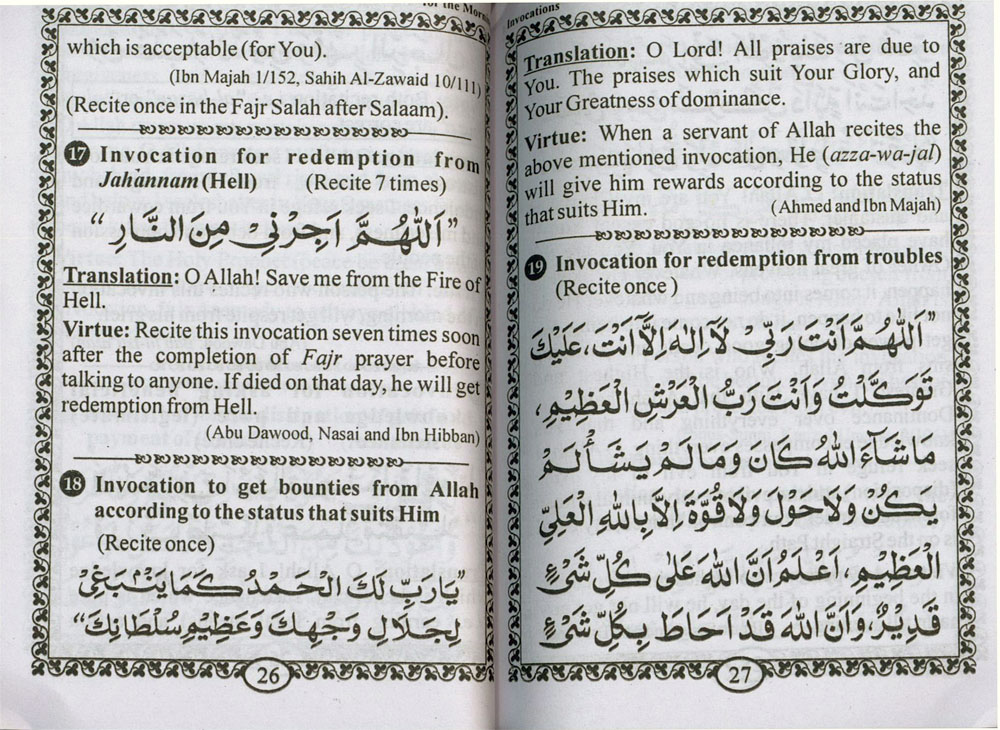 for the Morni
which is acceptable (for You).
(Ibn Majah 1/152, Sahih Al-Zawaid 10/111)
(Recite once in the Fajr Salah after Salaam).
17 Invocation for redemption from
Jahannam (Hell) (Recite 7 times)
”اَللّٰهُمَّ اَجِرْنِي مِنَ النَّارِ“
Translation: O Allah! Save me from the Fire of
Hell.
Virtue: Recite this invocation seven times soon
after the completion of Fajr prayer before
talking to anyone. If died on that day, he will get
redemption from Hell.
(Abu Dawood, Nasai and Ibn Hibban)
18 Invocation to get bounties from Allah
according to the status that suits Him
(Recite once)
”يَارَبِّ لَكَ الْحَمْدُ كَمَا يَنْبَغِيْ
لِجَلَالِ وَجْهِكَ وَعَظِيْمِ سُلْطَانِكَ“
26
Invocations
Translation: O Lord! All praises are due to
You. The praises which suit Your Glory, and
Your Greatness of dominance.
Virtue: When a servant of Allah recites the
above mentioned invocation, He (azza-wa-jal)
will give him rewards according to the status
that suits Him. (Ahmed and Ibn Majah)
19 Invocation for redemption from troubles
(Recite once )
”اَللّٰهُمَّ اَنْتَ رَبِّيْ لَآ اِلٰهَ اِلَّآ اَنْتَ، عَلَيْكَ
تَوَكَّلْتُ وَاَنْتَ رَبُّ الْعَرْشِ الْعَظِيْمِ،
مَا شَآءَ اللّٰهُ كَانَ وَمَا لَمْ يَشَأْ لَمْ
يَكُنْ وَلَا حَوْلَ وَلَا قُوَّةَ اِلَّا بِاللّٰهِ الْعَلِيِّ
الْعَظِيْمِ، اَعْلَمُ اَنَّ اللّٰهَ عَلٰى كُلِّ شَيْءٍ
قَدِيْرٌ، وَاَنَّ اللّٰهَ قَدْ اَحَاطَ بِكُلِّ شَيْءٍ
27